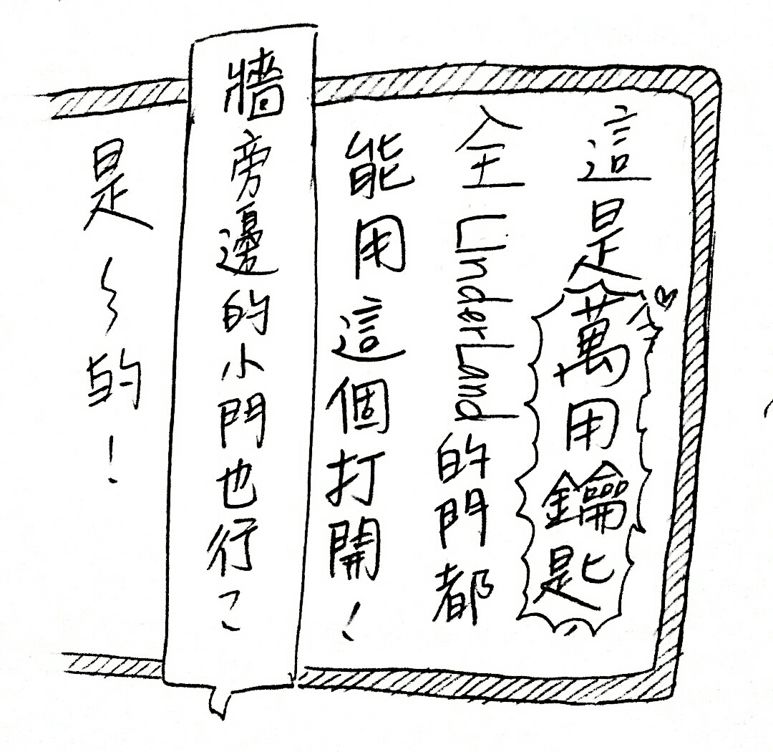 這是萬用鑰匙
全UnderLand的門都
能用這個打開！
牆旁邊的小門也行
是～的！